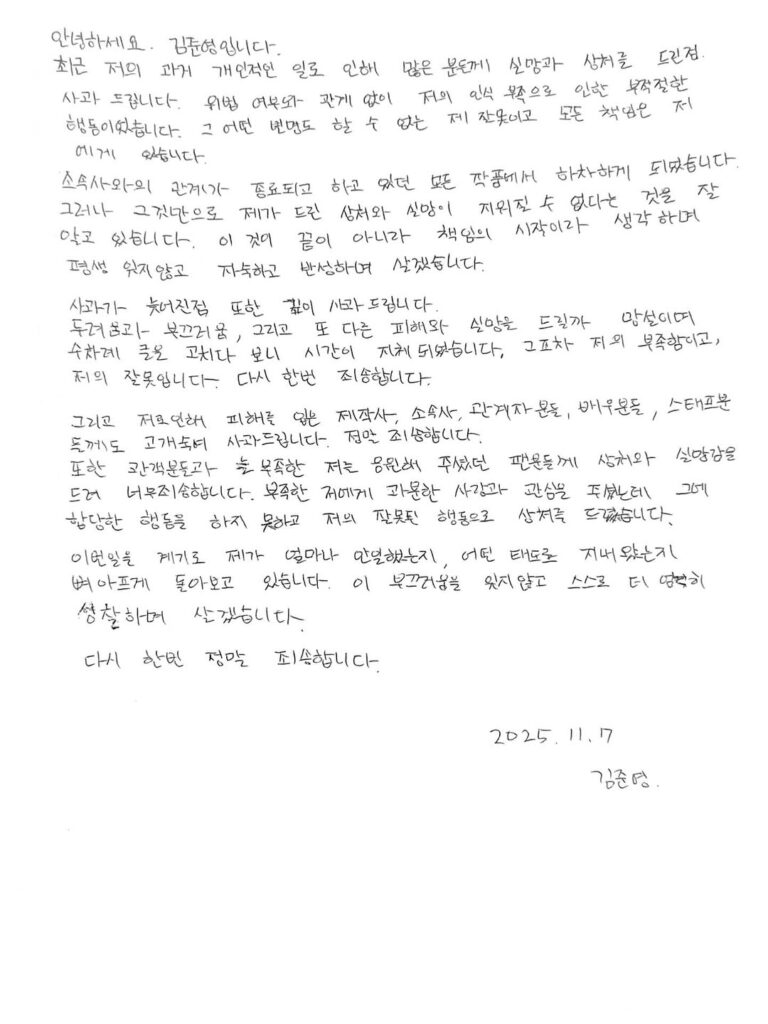 안녕하세요. 김준영입니다.
최근 저의 과거 개인적인 일로 인해 많은 분들께 실망과 상처를 드린점
사과 드립니다. 위법 여부와 관계 없이 저의 인식 부족으로 인한 부적절한
행동이었습니다. 그 어떤 변명도 할 수 없는 제 잘못이고 모든 책임은 저
에게 있습니다.
소속사와의 관계가 종료되고 하고 있던 모든 작품에서 하차하게 되었습니다.
그러나 그것만으로 제가 드린 상처와 실망이 지워질 수 없다는 것을 잘
알고 있습니다. 이 것이 끝이 아니라 책임의 시작이라 생각하며
평생 잊지않고 자숙하고 반성하며 살겠습니다.
사과가 늦어진점 또한 깊이 사과드립니다.
두려움과 부끄러움, 그리고 또 다른 피해와 실망을 드릴까 망설이며
수차례 글을 고치다 보니 시간이 지체되었습니다. 그조차 저의 부족함이고,
저의 잘못입니다. 다시 한번 죄송합니다.
그리고 저로인해 피해를 입은 제작사, 소속사, 관계자분들, 배우분들, 스태프분
들께도 고개숙여 사과드립니다. 정말 죄송합니다.
또한 관객분들과 늘 부족한 저를 응원해 주셨던 팬분들께 상처와 실망감을
드려 너무죄송합니다. 부족한 저에게 과분한 사랑과 관심을 주셨는데 그에
합당한 행동을 하지 못하고 저의 잘못된 행동으로 상처를 드렸습니다.
이번일을 계기로 제가 얼마나 안일했는지, 어떤 태도로 지내왔는지
뼈아프게 돌아보고 있습니다. 이 부끄러움을 잊지않고 스스로 더 엄격히
성찰하며 살겠습니다.
다시 한번 정말 죄송합니다.
2025.11.7
김준영.